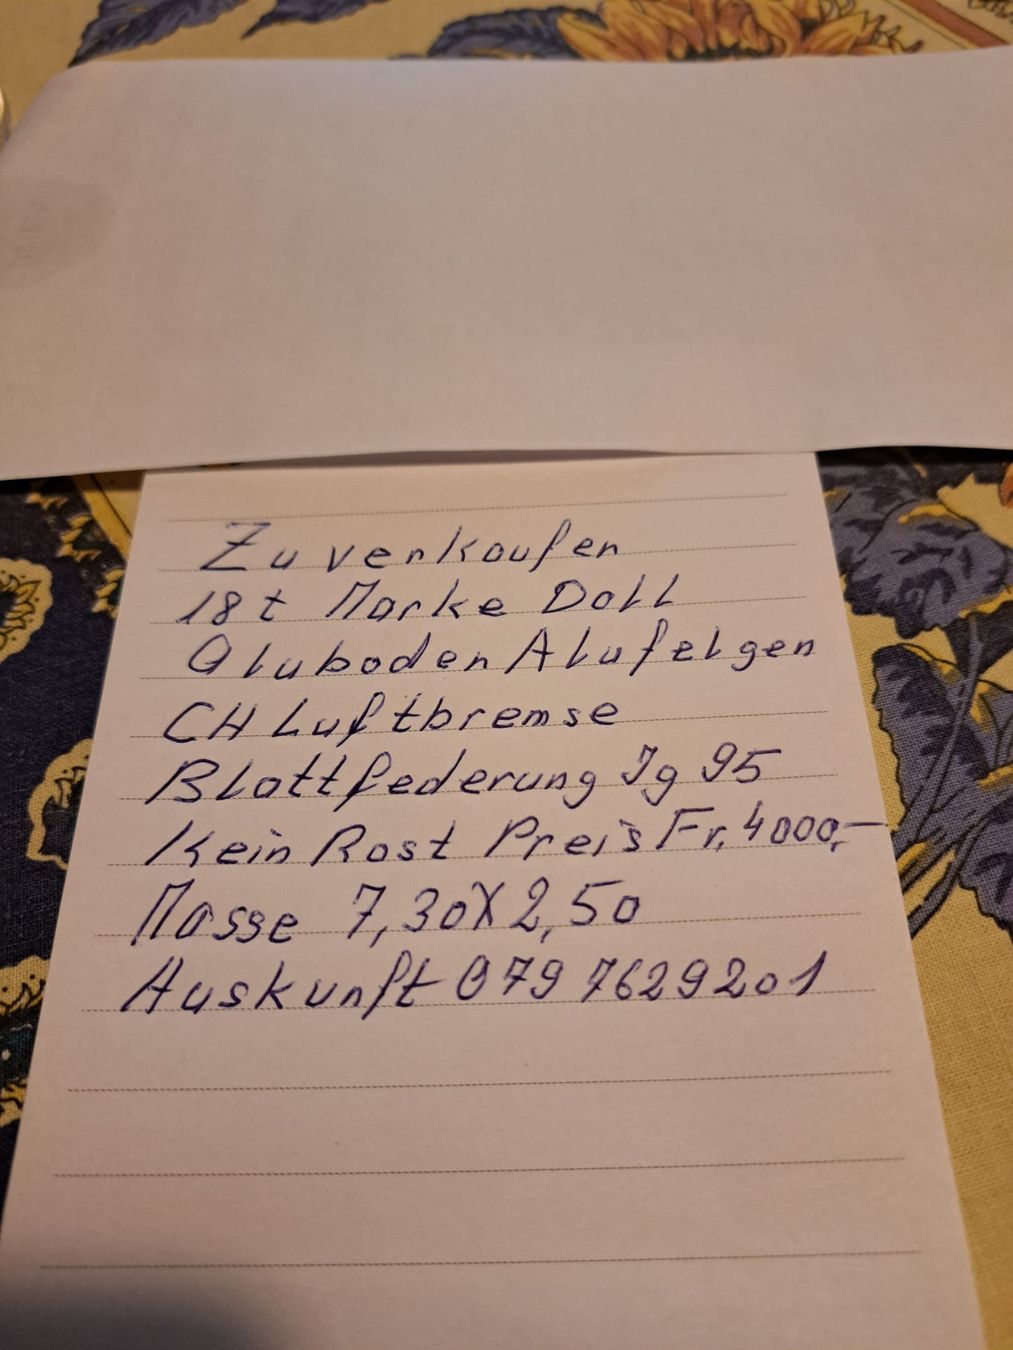 Zu verkaufen
18t Marke Doll
Aluboden Alufelgen
CH Luftbremse
Blattfederung Jg 95
Kein Rost Preis Fr. 4000,—
Masse 7,30X2,50
Auskunft 079 7629201